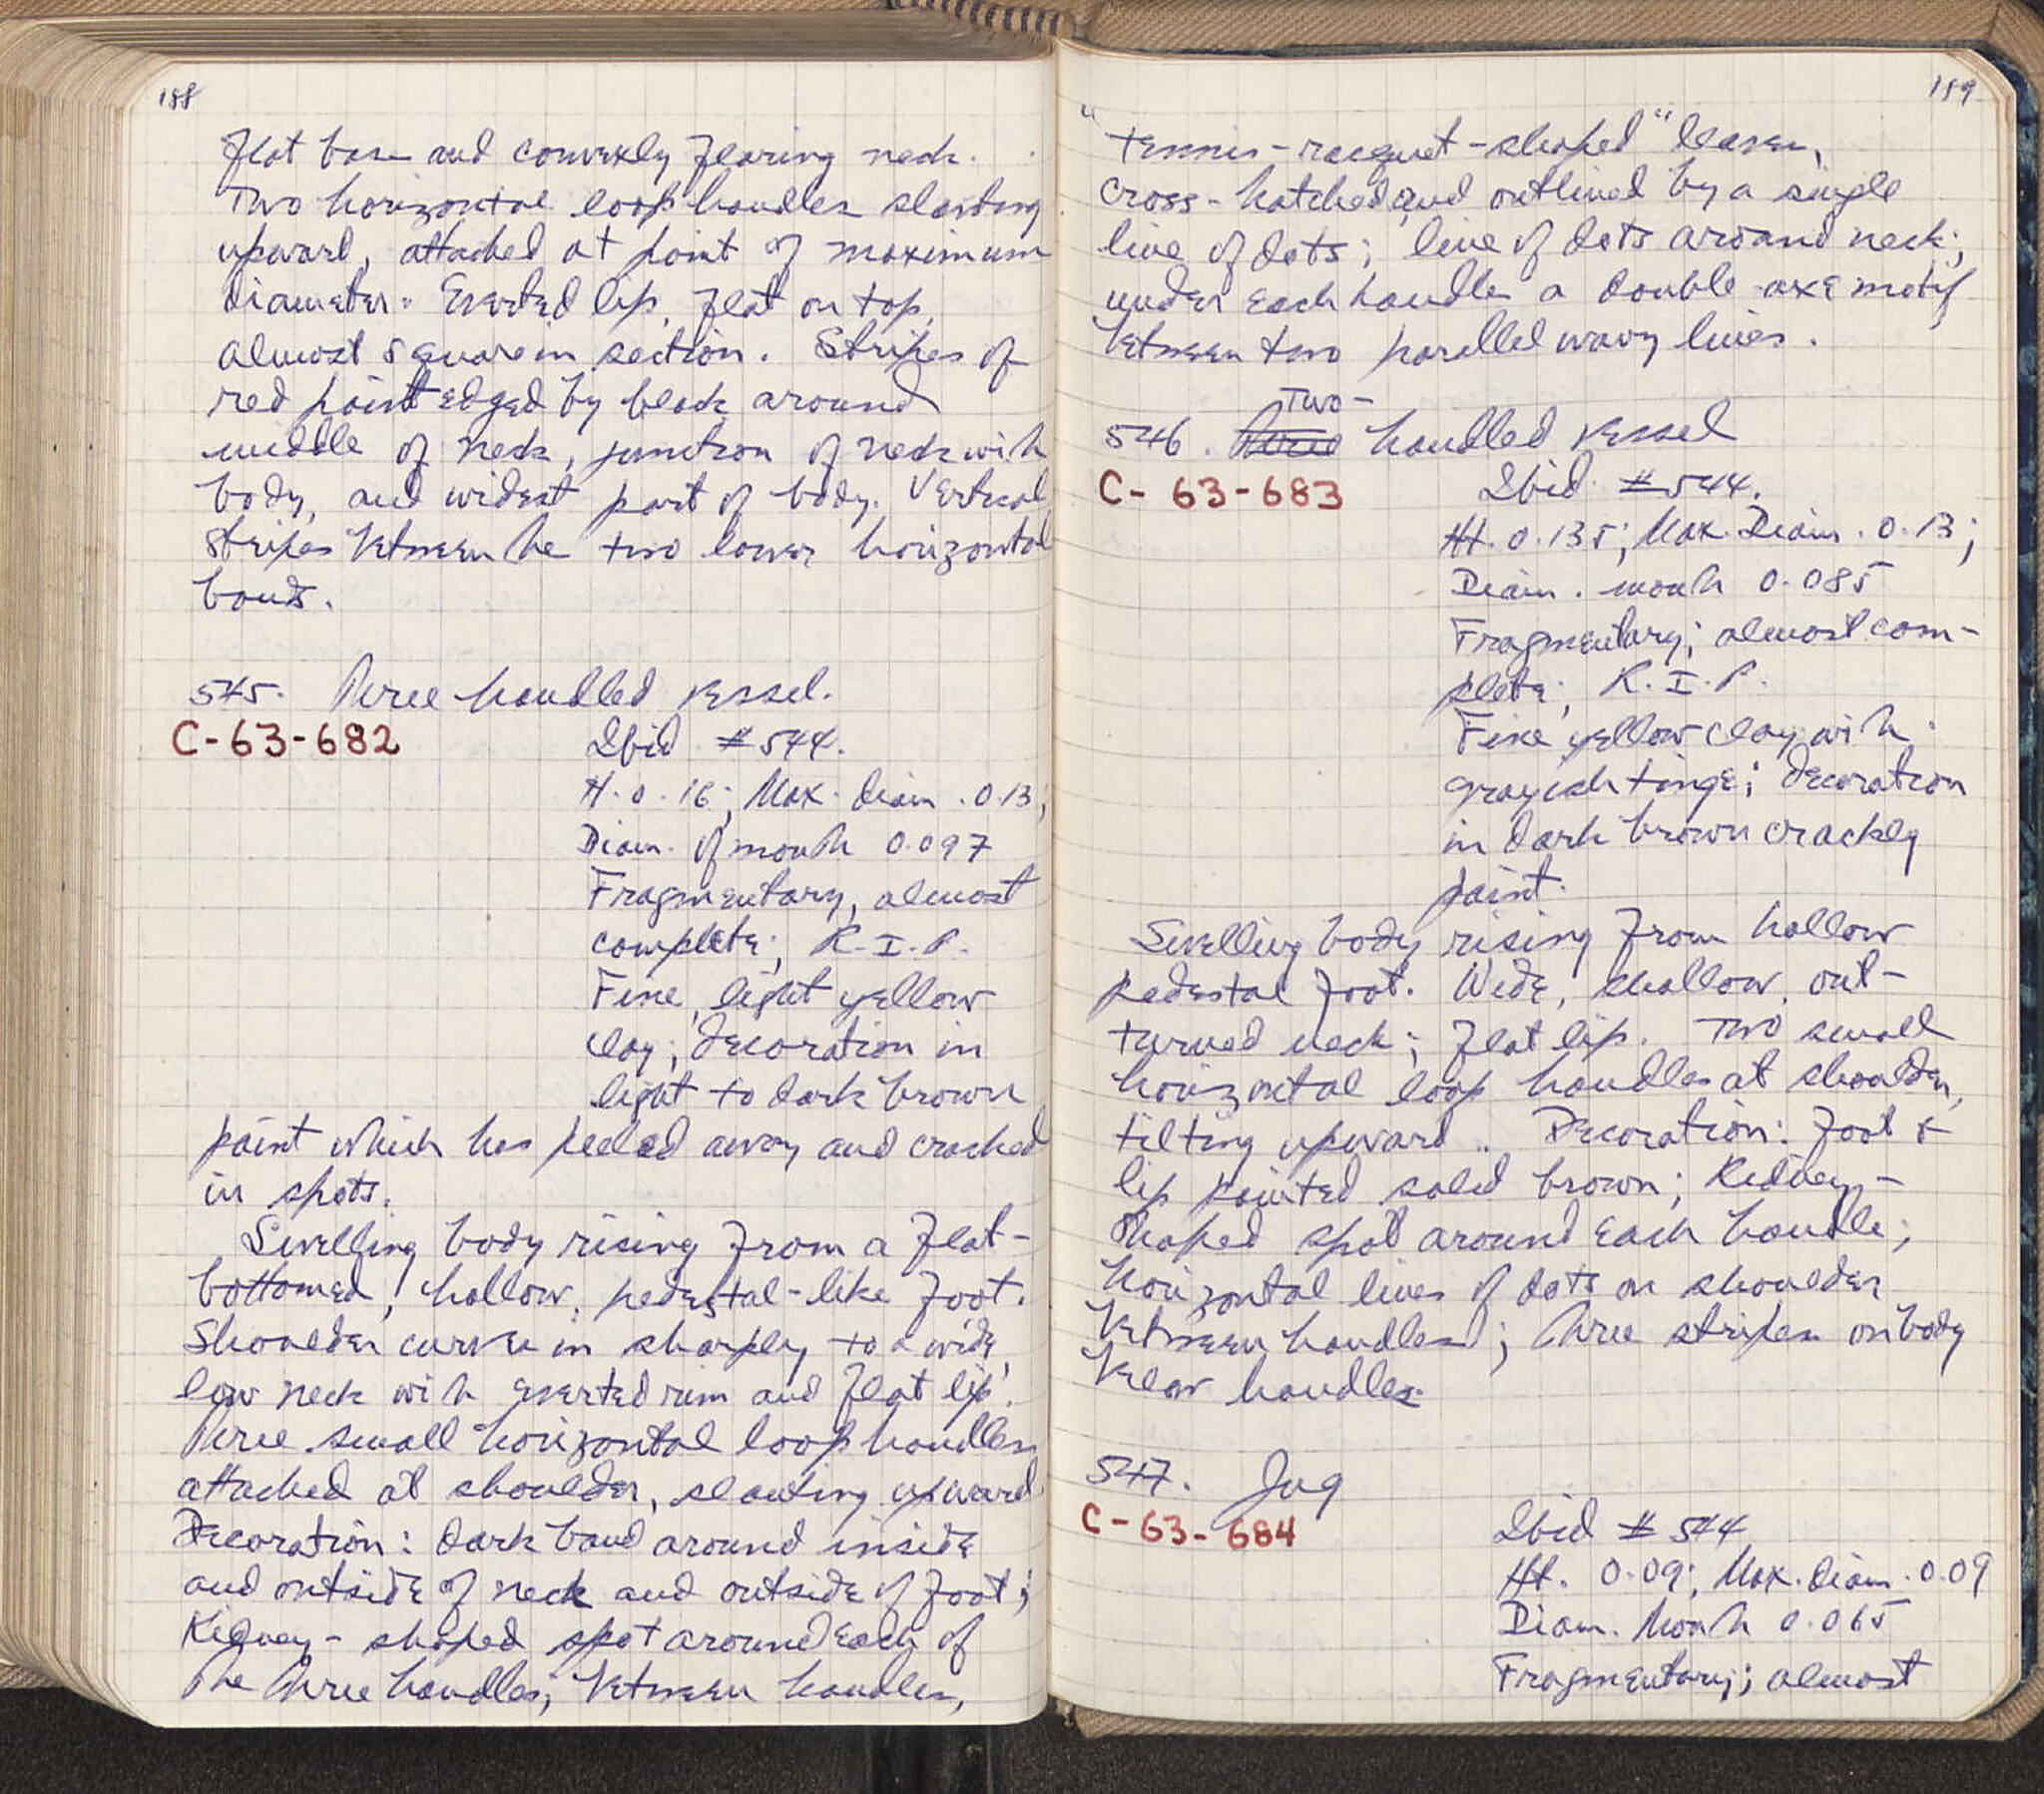 188
Flat base and convexly flaring neck.
Two horizontal loop handles slanting
upward, attached at point of maximum
diameter. Everted lip, flat on top,
almost square in section. Stripes of
red paint edged by black around
middle of neck, junction of neck with
body, and widest part of body. Vertical
stripes between the two lower horizontal
bands.
545. Three handled vessel.
C-63-682
Ibid #544.
H. 0.16; Max. diam. 0.13;
Diam. of mouth 0.097
Fragmentary, almost
complete; R.I.P.
Fine, light yellow
clay; decoration in
light to dark brown
paint which has peeled away and cracked
in spots.
Swelling body rising from a flat-
bottomed, hollow, pedestal-like foot.
Shoulder curves in sharply to a wide,
low neck with everted rim and flat lip.
Three small horizontal loop handles
attached at shoulder, slanting upward.
Decoration: dark band around inside
and outside of neck and outside of foot;
Kidney-shaped spot around each of
the three handles; between handles,
189
"tennis-racquet-shaped" leaves,
cross-hatched and outlined by a single
line of dots; line of dots around neck;
under each handle a double-axe motif
between two parallel wavy lines.
Two-
546. Three handled vessel
C-63-683
Ibid #544.
Ht. 0.135; Max. Diam. 0.13;
Diam. mouth 0.085
Fragmentary; almost com-
plete; R.I.P.
Fine yellow clay with
grayish tinge; decoration
in dark brown crackly
paint.
Swelling body rising from hollow
pedestal foot. Wide, shallow, out-
turned neck; flat lip. Two small
horizontal loop handles at shoulder,
tilting upward.. Decoration: foot &
lip painted solid brown; Kidney-
shaped spot around each handle;
horizontal lines of dots on shoulder
between handles; three stripes on body
below handles.
547. Jug
C-63-684
Ibid #544
Ht. 0.09; Max. diam. 0.09
Diam. Mouth 0.065
Fragmentary; almost